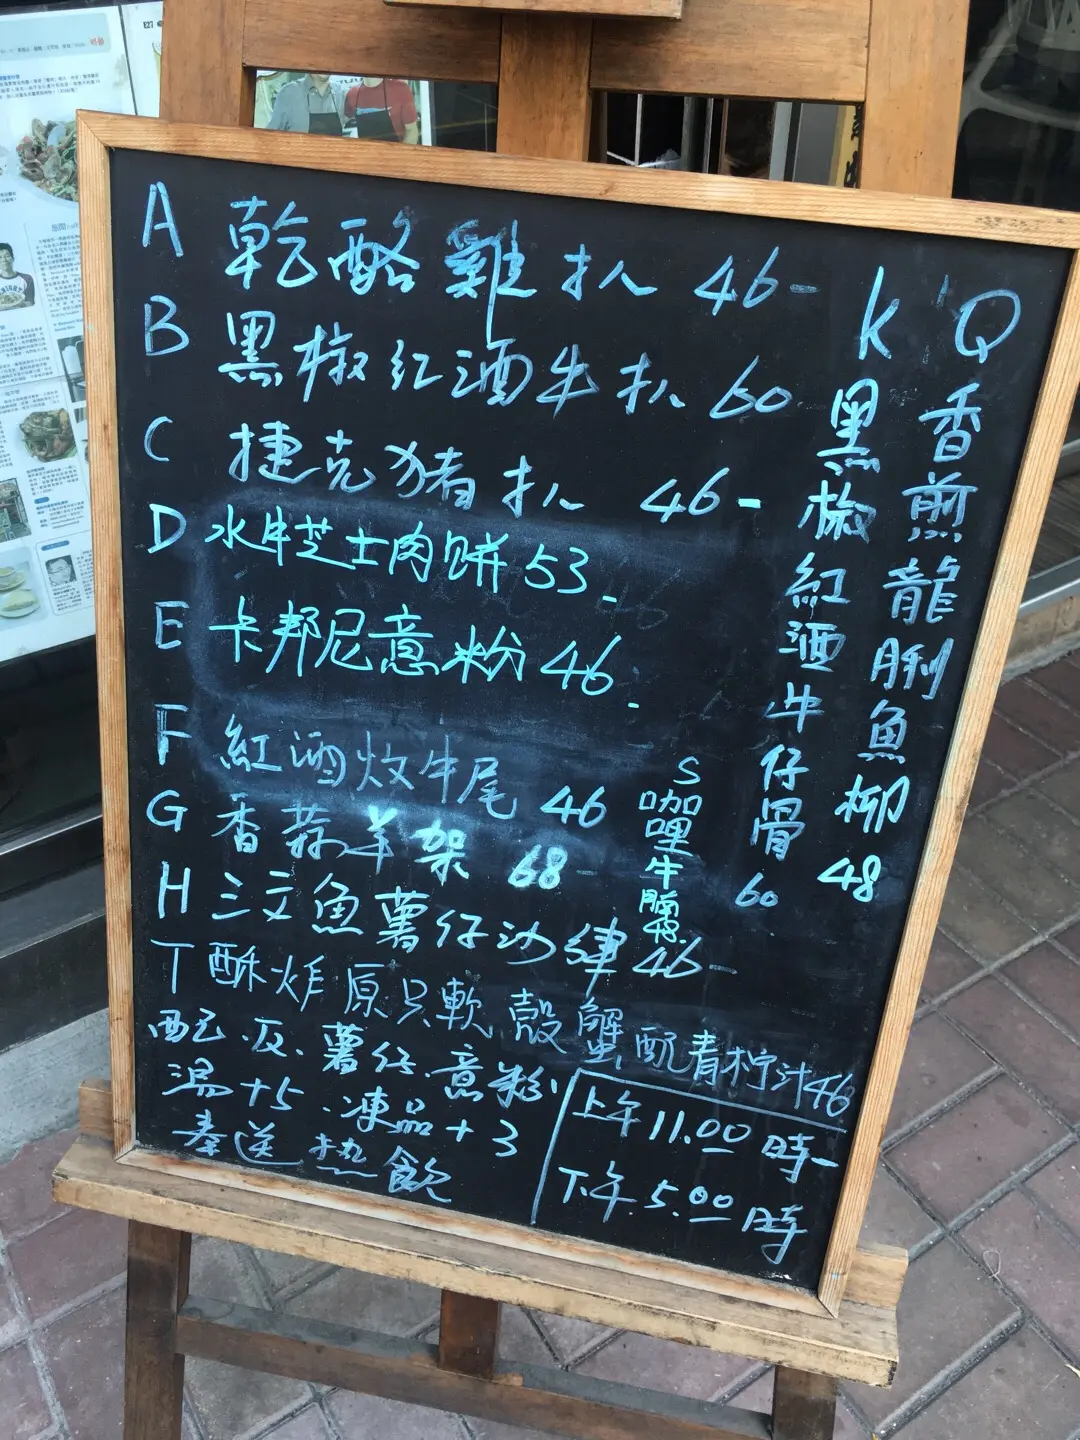 A 乾酪雞扒 46-
B 黑椒红酒牛扒 60
C 捷克猪扒 46-
D 水牛芝士肉餅 53-
E 卡邦尼意粉 46-
F 紅酒炆牛尾 46
G 香蒜羊架 68
H 三文魚薯仔沙律 46-
T 酥炸原只軟殼蟹配青柠汁46
配.反.薯仔.意粉
湯+5.凍品+3
奉送热飲
S 咖哩牛腩48
K 黑椒紅酒牛仔骨 60
Q 香煎龍脷魚柳 48
上午11.00時-
下午.5.00時
E27